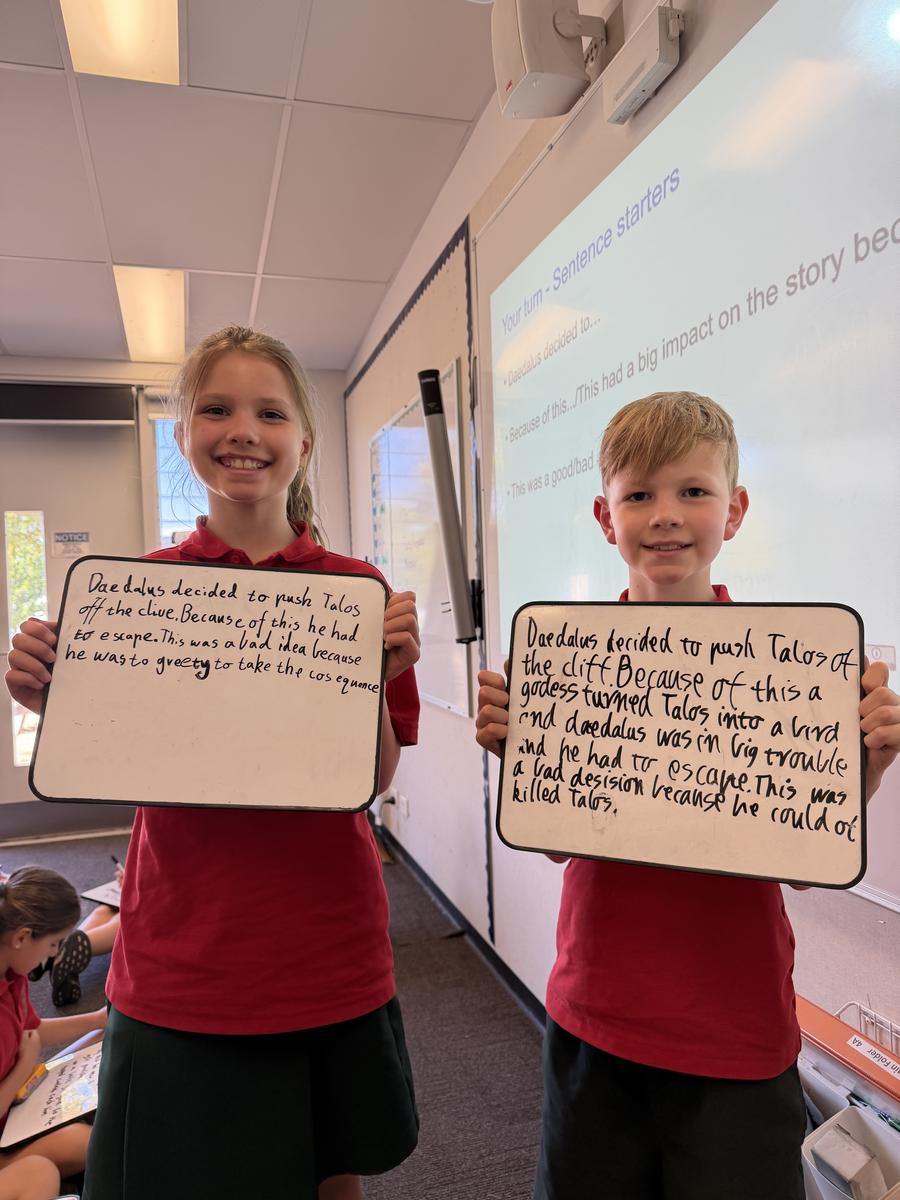 Your turn - Sentence starters
• Daedalus decided to...
• Because of this.../This had a big impact on the story bec
• This was a good/bad
NOTICE
Daedalus decided to push Talos
off the clive. Because of this he had
to escape. This was a bad idea because
he was to greety to take the cos equence
Daedalus decided to push Talos of
the cliff. Because of this a
godess turned Talos into a bird
and daedalus was in big trouble
and he had to escape. This was
a bad desision because he could of
killed Talos.
4A
in Folder